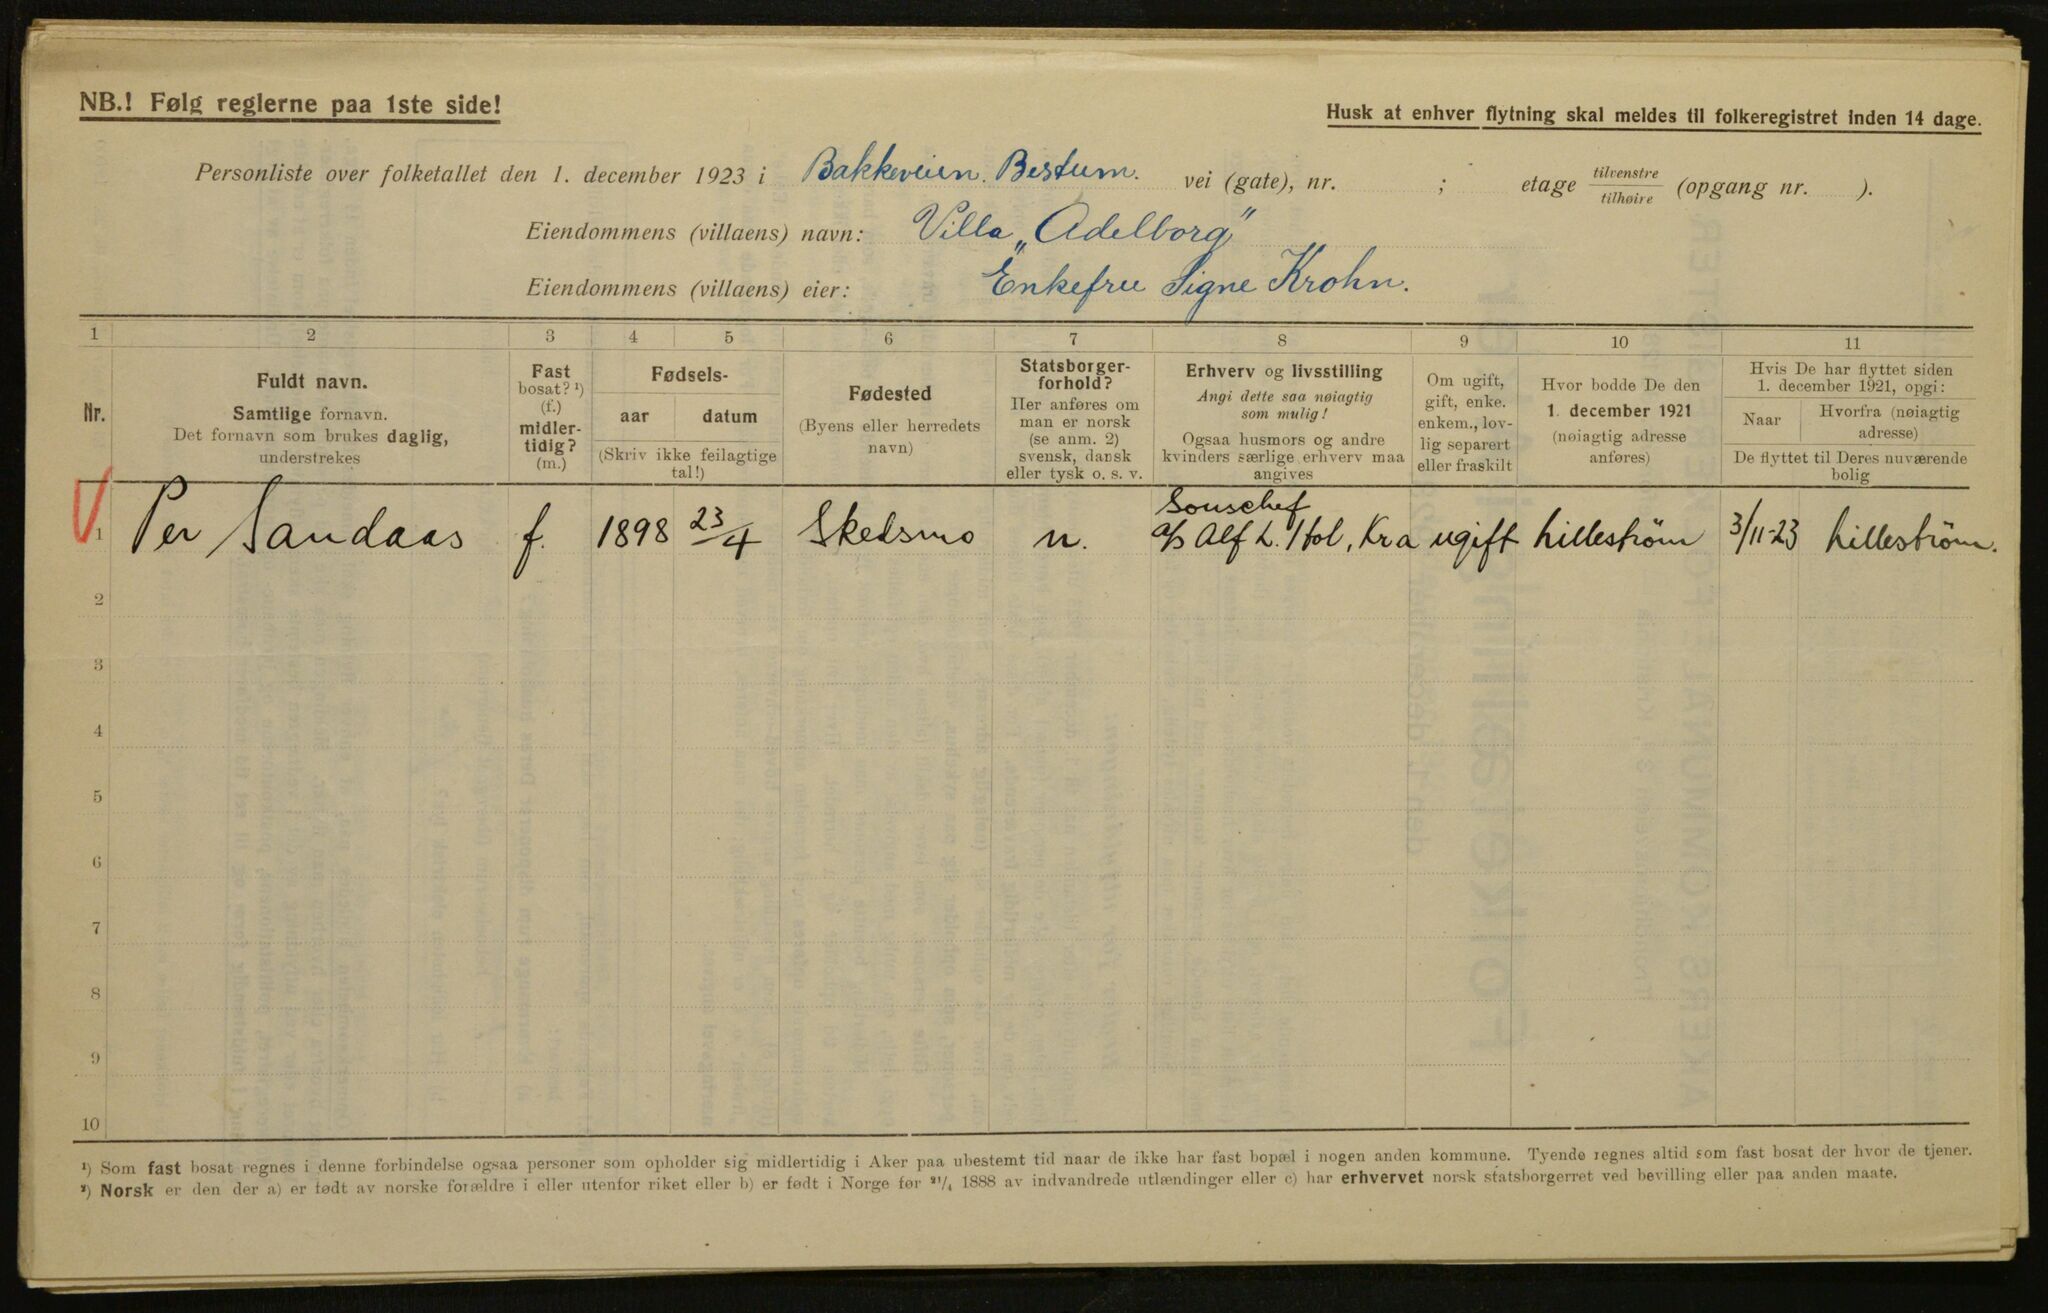 NB.! Følg reglerne paa 1ste side!
Husk at enhver flytning skal meldes til folkeregistret inden 14 dage.
Personliste over folketallet den 1. december 1923 i Bakkeveien. Bestum. vei (gate), nr. ; etage tilvenstre/tilhøire (opgang nr. ).
Eiendommens (villaens) navn: Villa „Adelborg"
Eiendommens (villaens) eier: Enkefru Signe Krohn.
1 2 3 4 5 6 7 8 9 10 11
Nr.
Fuldt navn.
Samtlige fornavn.
Det fornavn som brukes daglig,
understrekes
Fast
bosat? ¹)
(f.)
midler-
tidig?
(m.)
Fødsels-
aar datum
(Skriv ikke feilagtige
tal!)
Fødested
(Byens eller herredets
navn)
Statsborger-
forhold?
Her anføres om
man er norsk
(se anm. 2)
svensk, dansk
eller tysk o. s. v.
Erhverv og livsstilling
Angi dette saa nøiagtig
som mulig!
Ogsaa husmors og andre
kvinders særlige erhverv maa
angives
Om ugift,
gift, enke.
enkem., lov-
lig separert
eller fraskilt
Hvor bodde De den
1. december 1921
(nøiagtig adresse
anføres)
Hvis De har flyttet siden
1. december 1921, opgi:
Naar
Hvorfra (nøiagtig
adresse)
De flyttet til Deres nuværende
bolig
V
1 Per Sandaas f. 1898 23/4 Skedsmo n. Souschef
a/s Alf L. , Kra ugift Lillestrøm 3/11-23 Lillestrøm.
2
3
4
5
6
7
8
9
10
¹) Som fast bosat regnes i denne forbindelse ogsaa personer som opholder sig midlertidig i Aker paa ubestemt tid naar de ikke har fast bopæl i nogen anden kommune. Tyende regnes altid som fast bosat der hvor de tjener.
²) Norsk er den der a) er født av norske forældre i eller utenfor riket eller b) er født i Norge før ²¹/₄ 1888 av indvandrede utlændinger eller c) har erhvervet norsk statsborgerret ved bevilling eller paa anden maate.